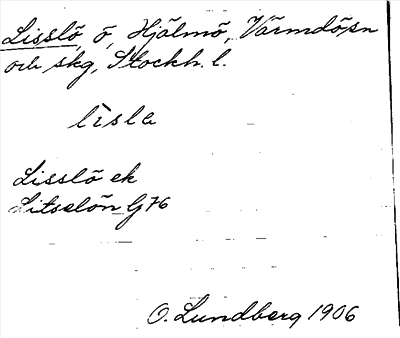 Lisslö, ö, Hjälmö, Värmdö sn
och skg, Stockh. l.
lisla
Lisslö ek
Litselön G 76
O. Lundberg 1906